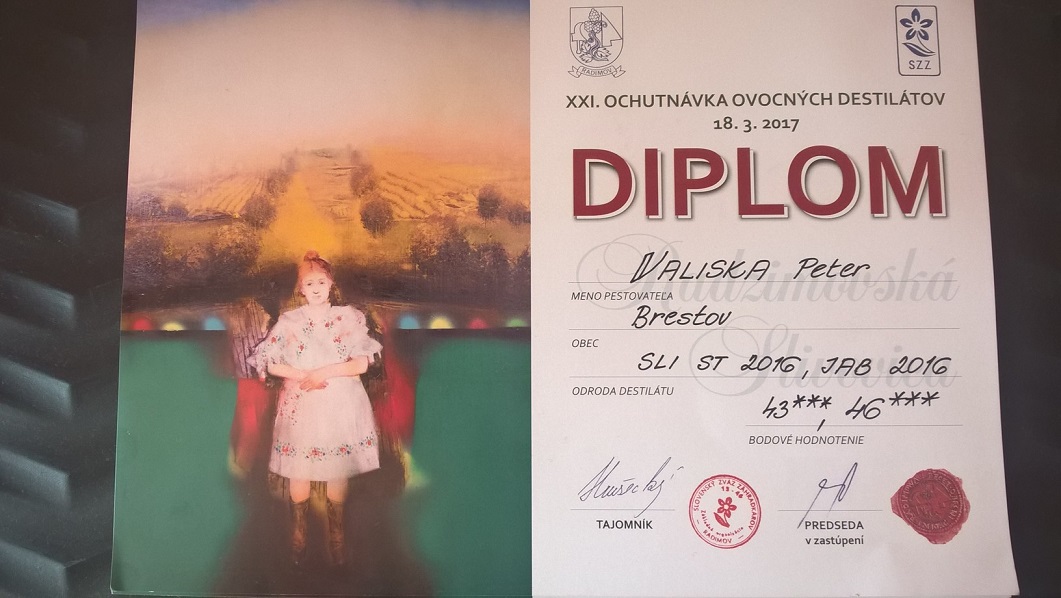 RADIMOV
SZZ
XXI. OCHUTNÁVKA OVOCNÝCH DESTILÁTOV
18. 3. 2017
DIPLOM
Radzimovská
Slivovica
VALISKA Peter
MENO PESTOVATEĽA
Brestov
OBEC
SLI ST 2016, JAB 2016
ODRODA DESTILÁTU
43***, 46***
BODOVÉ HODNOTENIE
TAJOMNÍK
SLOVENSKÝ ZVÄZ ZÁHRADKÁROV
13-46
Základná organizácia
RADIMOV
PREDSEDA
v zastúpení